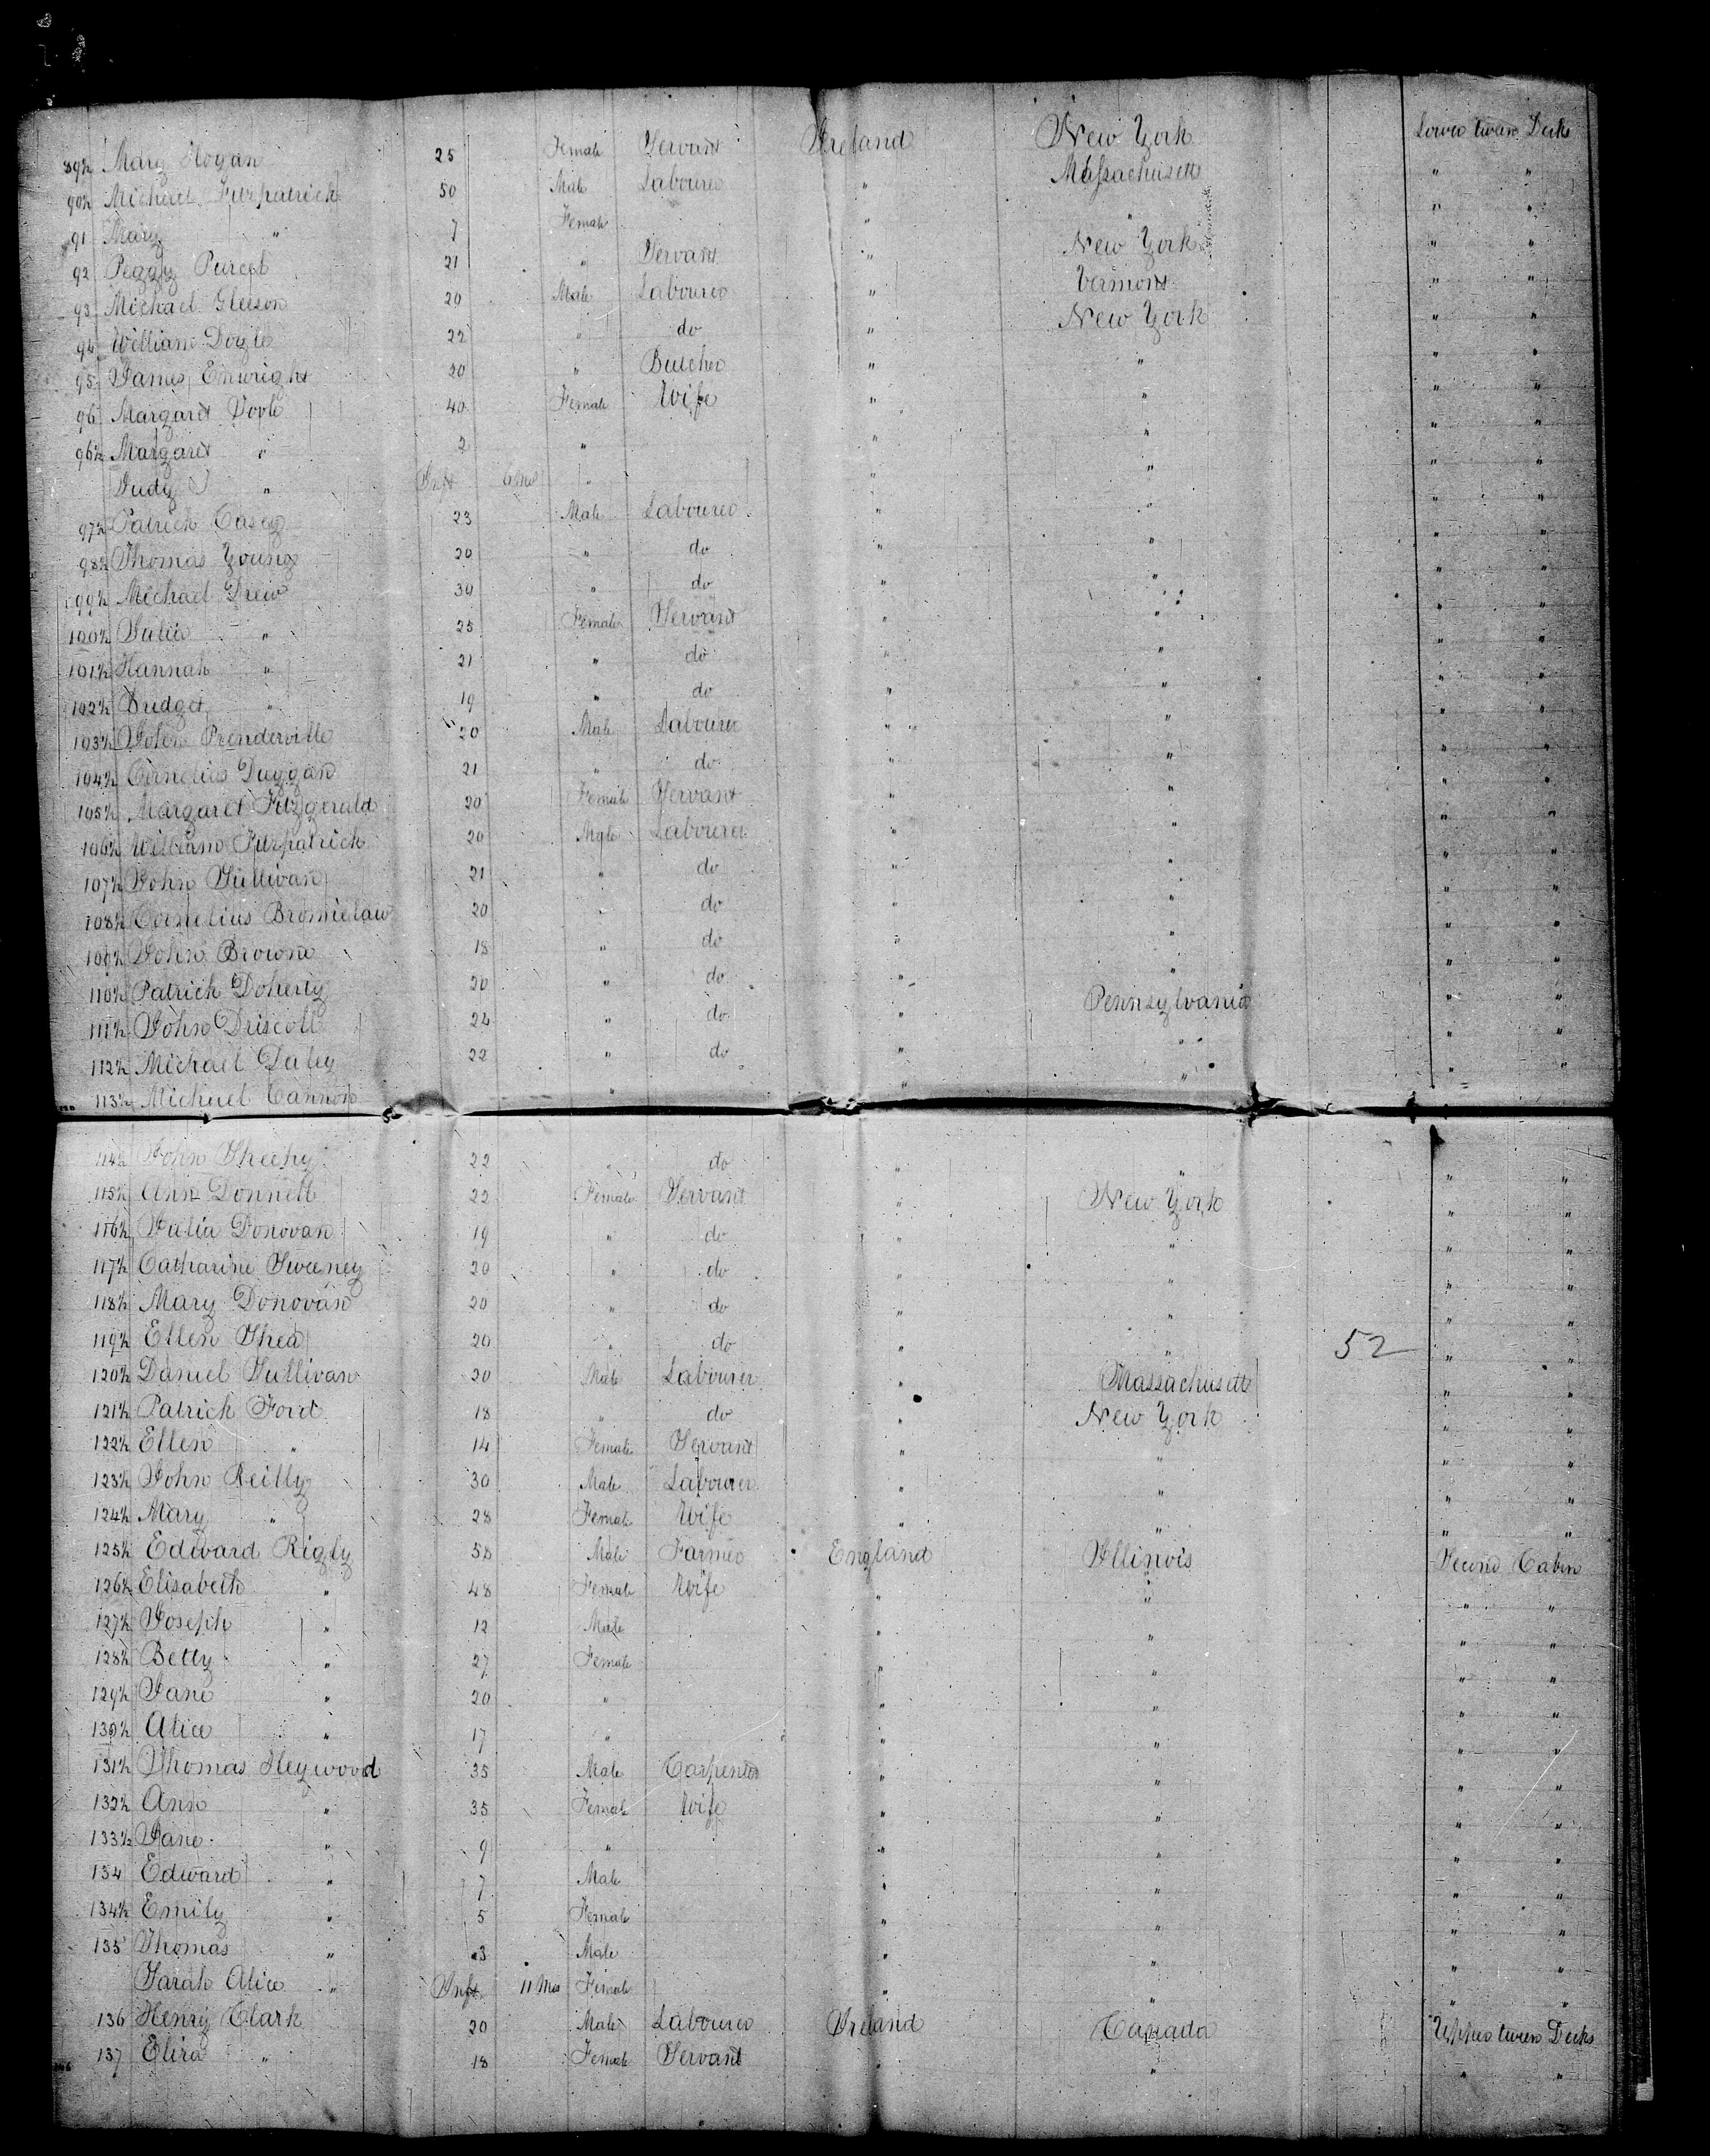 89½ Mary Hogan 25 Female Servant Ireland New York Lower tween Decks
90½ Michael Fitzpatrick 50 Male Labourer " Massachusetts " "
91 Mary " 7 Female " " " "
92 Peggy Purcel 21 " Servant " New York " "
93 Michael Gleeson 20 Male Labourer " Vermont " "
94 William Doyle 22 " do " New York " "
95 James Enwright 20 " Butcher " " " "
96 Margaret 40 Female Wife " " " "
96½ Margaret " 2 " " " " "
Judy " Inft 6 Mos " " " " "
97½ Patrick Casey 23 Male Labourer " " " "
98½ Thomas Young 20 " do " " " "
99½ Michael Drew 30 " do " " " "
100½ Julia " 25 Female Servant " " " "
101½ Hannah " 21 " do " " " "
102½ Bridget " 19 " do " " " "
103½ John Prenderville 20 Male Labourer " " " "
104½ Cornelius Duggan 21 " do " " " "
105½ Margaret Fitzgerald 20 Female Servant " " " "
106½ William Fitzpatrick 20 Male Labourer " " " "
107½ John Sullivan 21 " do " " " "
108½ Cornelius Bromielaw 20 " do " " " "
109½ John Browne 18 " do " " " "
110½ Patrick Doherty 20 " do " " " "
111½ John Driscoll 24 " do " Pennsylvania " "
112½ Michael Daley 22 " do " " " "
113½ Michael Cannon " " " " "
114½ John Sheehy 22 " do " " " "
115½ Ann Donnell 22 Female Servant " New York " "
116½ Julia Donovan 19 " do " " " "
117½ Catharine Sweeney 20 " do " " " "
118½ Mary Donovan 20 " do " " " "
119½ Ellen Shea 20 " do " " 52 " "
120½ Daniel Sullivan 20 Male Labourer " Massachusetts " "
121½ Patrick Ford 18 " do " New York " "
122½ Ellen " 14 Female Servant " " " "
123½ John Reilly 30 Male Labourer " " " "
124½ Mary " 28 Female Wife " " " "
125½ Edward Rigby 50 Male Farmer England Illinois Second Cabin
126½ Elisabeth " 48 Female Wife " " " "
127½ Joseph " 12 Male " " " "
128½ Betty " 27 Female " " " "
129½ Jane " 20 " " " " "
130½ Alice " 17 " " " " "
131½ Thomas Heywood 35 Male Carpenter " " " "
132½ Ann " 35 Female Wife " " " "
133½ Jane " 9 " " " " "
134 Edward " 7 Male " " " "
134½ Emily " 5 Female " " " "
135 Thomas " 3 Male " " " "
Sarah Alice " Inft 11 Mos Female " " " "
136 Henry Clark 20 Male Labourer Ireland Canada Upper tween Decks
137 Eliza " 18 Female Servant " " "